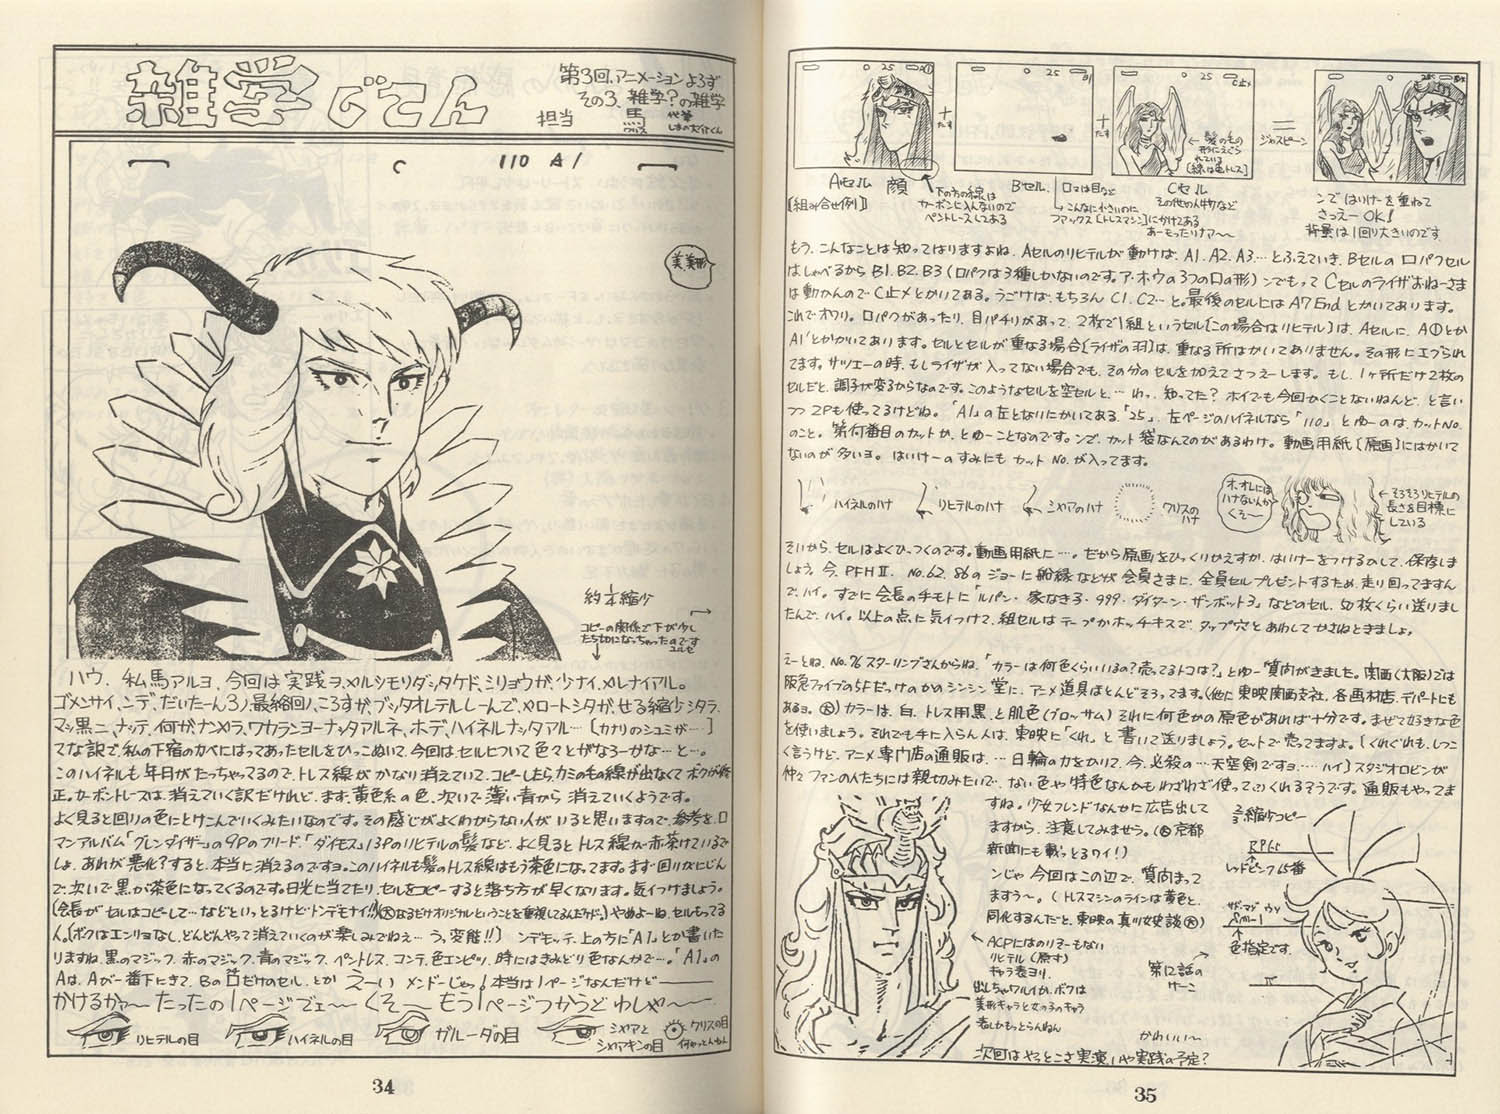 雑学じてん
第3回、アニメーションよろず
その3、雑学?の雑学
担当 馬 代筆
クリス
C 110 A1
美美形
約1/2縮少
コピーの関係で下が少し
ハウ、私馬アルヨ、今回は実践ヲ、メルシモリダシタケド、ミリョウガ、少ナイ、メレナイアル。
ゴメンサイ、ンデ、だいたーん3ノ、最終回ノ、ころすが、ブッタオレテルしーんで、メロートシタガ、せる縮少シタラ、
マッ黒ニ、ナッテ、何ガ、ナメラ、ワカランヨーナッタアルネ、ホデ、ハイネルナッタアル…〔カナリのシュミが…〕
てな訳で、私の下宿のカベにはってあったセルをひっこぬいて、今回はセルについて色々とがなろーかな…と…。
このハイネルも年月がたっちゃってるので、トレス線がかなり消えていて、コピーしたら、カミの毛の線が出なくてボクが修
正。カーボントレースは、消えていく訳だけれど、まず、黄色系の色、次いで薄い青から消えていくようです。
よく見ると回りの色にとけこんでいくみたいなのです。その感じがよくわからない人がいると思いますので、参考を、ロ
マンアルバム「グレンダイザー」の9Pのフリード、「ダイモス」13Pのリヒテルの髪など、よく見るとトレス線が赤茶けているで
しょ、あれが悪化?すると、本当に消えるのですヨ。このハイネルも髪のトレス線はもう茶色になってます。まず回りがにじん
で、次いで黒が茶色になってくるのです。日光に当てたり、セルをコピーすると落ち方が早くなります。気イつけましょう。
(会長がセルはコピーして…などといっとるけどトンデモナイ!!(犬なるだけオリジナルということを重視してるんだけど。)やめよーね、セルもってる
人。(ボクはエンリョなし、どんどんやって消えていくのが楽しみでねえ… うっ、変態!!) ンデモッテ、上の方に「A1」とか書いた
りますね、黒のマジック、赤のマジック、青のマジック、ペントレス、コンテ、色エンピツ、時にはきみどり色なんかで…。「A1」の
Aは、Aが一番下にきて、Bの口だけのセル、とか えーい メンドーじゃっ!本当は1ページなんだけど―――
かけるかァ〜 たったの1ページでェ〜 くそ〜 もう1ページつからど わしゃ〜
リヒテルの目 ハイネルの目 ガルーダの目 シャアと
シャアキンの目 クリスの目
34
25 A①
25 B1
25 C止メ
+
たす
+
たす
=
ジャスピーン
←髪のもの
形にえぐら
れている
[線は色トレス]
Aセル 顔
〔組み合せ例〕
下の方の線は
カーボンに入んないので
ペントレースしてある
Bセル.
口マは目など
こんなに小さいのに
ファックス[トレスマシン]にかけてある
あーもったりナァ〜
Cセル
その他の人物など
ンで はいけーを重ねて
さっえーOK!
背景は1回り大きいのです
もう、こんなことは知ってはりますよね、Aセルのリヒテルが動けば、A1. A2. A3…とふえていき、Bセルの口パクセル
はしゃべるからB1. B2. B3 (口パクは3種しかないのです。ア・ホ・ウの3つの口の形) ンでもってCセルのライザおねーさま
は動かんのでC止メとかいてある。うごけば、もちろんC1. C2…と。最後のセルにはA7 Endとかいてあります。
これでオワリ。口パクがあったり、目パチリがあって、2枚で1組というセル[この場合はリヒテル]は、Aセルに、A①とか
A1'とかかいてあります。セルとセルが重なる場合[ライザの羽]は、重なる所はかいてありません。その形にエグられ
てます。サツエーの時、もしライザが入ってない場合でも、その分のセルを加えてさつえーします。もし、1ヶ所だけ2枚の
セルだと、調子が変るからなのです。このようなセルを空セルと、… わっ、知ってた? ホイでも今回かくことないねんど、と言い
つつ2Pも使ってるけどね。「A1」の左となりにかいてある「25」、左ページのハイネルなら「110」とゆーのは、カットNo.
のこと。第何番目のカットか、とゆーことなのです。ンで、カット袋なんてのがあるわけ。動画用紙〔原画〕にはかいて
ないのが多いヨ。はいけーのすみにもカットNo.が入ってます。
ハイネルのハナ リヒテルのハナ シャアのハナ クリスの
ハナ
オ、オレには
ハナないんか
くそ〜
←そろそろリヒテルの
長さを目標に
している
そいから、セルはよくひっつくのです。動画用紙に…。だから原画をひっくりかえすか、はいけーをつけるのして、保存しま
しょう。今、PFHⅡ. No.62. 86のジョーに船縁などが会員さまに、全員セルプレゼントするため、走り回ってますん
で、ハイ。すでに会長のチモトに「ルパン・家なき子・999・ダイターン・ザンボット3」などのセル、50枚くらい送りまし
たんで、ハイ。以上の点に気イつけて、組セルはテープかホッチキスで、タップ穴とあわしてかさねときましょ。
えーとね、No.76 スターリングさんからね、「カラーは何色くらいいるの?売ってるトコは?」とゆー質問がきました。関西(大阪)では
阪急ファイブの5Fだっけのかのシンシン堂に、アニメ道具はとんどそろってます。(他に東映関西支社、各画材店、デパートにも
あるヨ。犬) カラーは、白、トレス用黒、と肌色(ブローサム) それに何色かの原色があれば十分です。まぜて好きな色
を使いましょう。それでも手に入らん人は、東映に「くれ」と書いて送りましょう。セットで売ってますよ。〔くれぐれも、しつこ
く言うけど、アニメ専門店の通販は、… 日輪の力をかりて、今、必殺の…天空剣ですヨ…… ハイ〕スタジオロビンが
仲々ファンの人たちには親切みたいで、ない色や特色なんかもわざわざ使ってくれるそうです。通販もやってま
すね。少女フレンドなんかに広告出して
ますから、注意してみませう。(京都
新聞にも載っとるワイ!)
ンじゃ 今回はこの辺で、質問まって
ますう〜。(トスマシンのラインは黄色と、
同化するんだと、東映の真川女史談犬)
←ACPにはのりそーもない
リヒテル(原寸)
キャラ表ヨリ.
出しちゃワルイか、ボクは
美形キャラと女の子のキャラ
しかもっとらんねん
2/3縮少コピー
RP65
レッドピンク65番
色指定です.
第12話の
けーこ
かわいい〜
次回はやっとこさ実演、いや実践の予定?
35